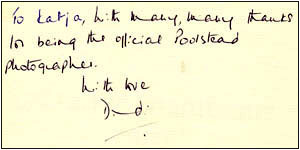 To Katja, with many, many thanks
for being the official Poolstead
photographer.
With love